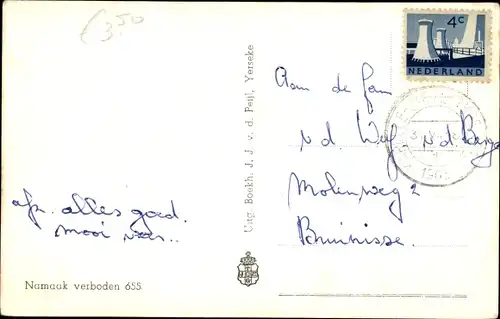 3.50
4c
NEDERLAND
Aan de fam
v d v d
Molenweg 2
Bruinisse.
alles goed.
mooi
Uitg. Boekh. J. J. v. d. Peijl, Yerseke
Namaak verboden 655.